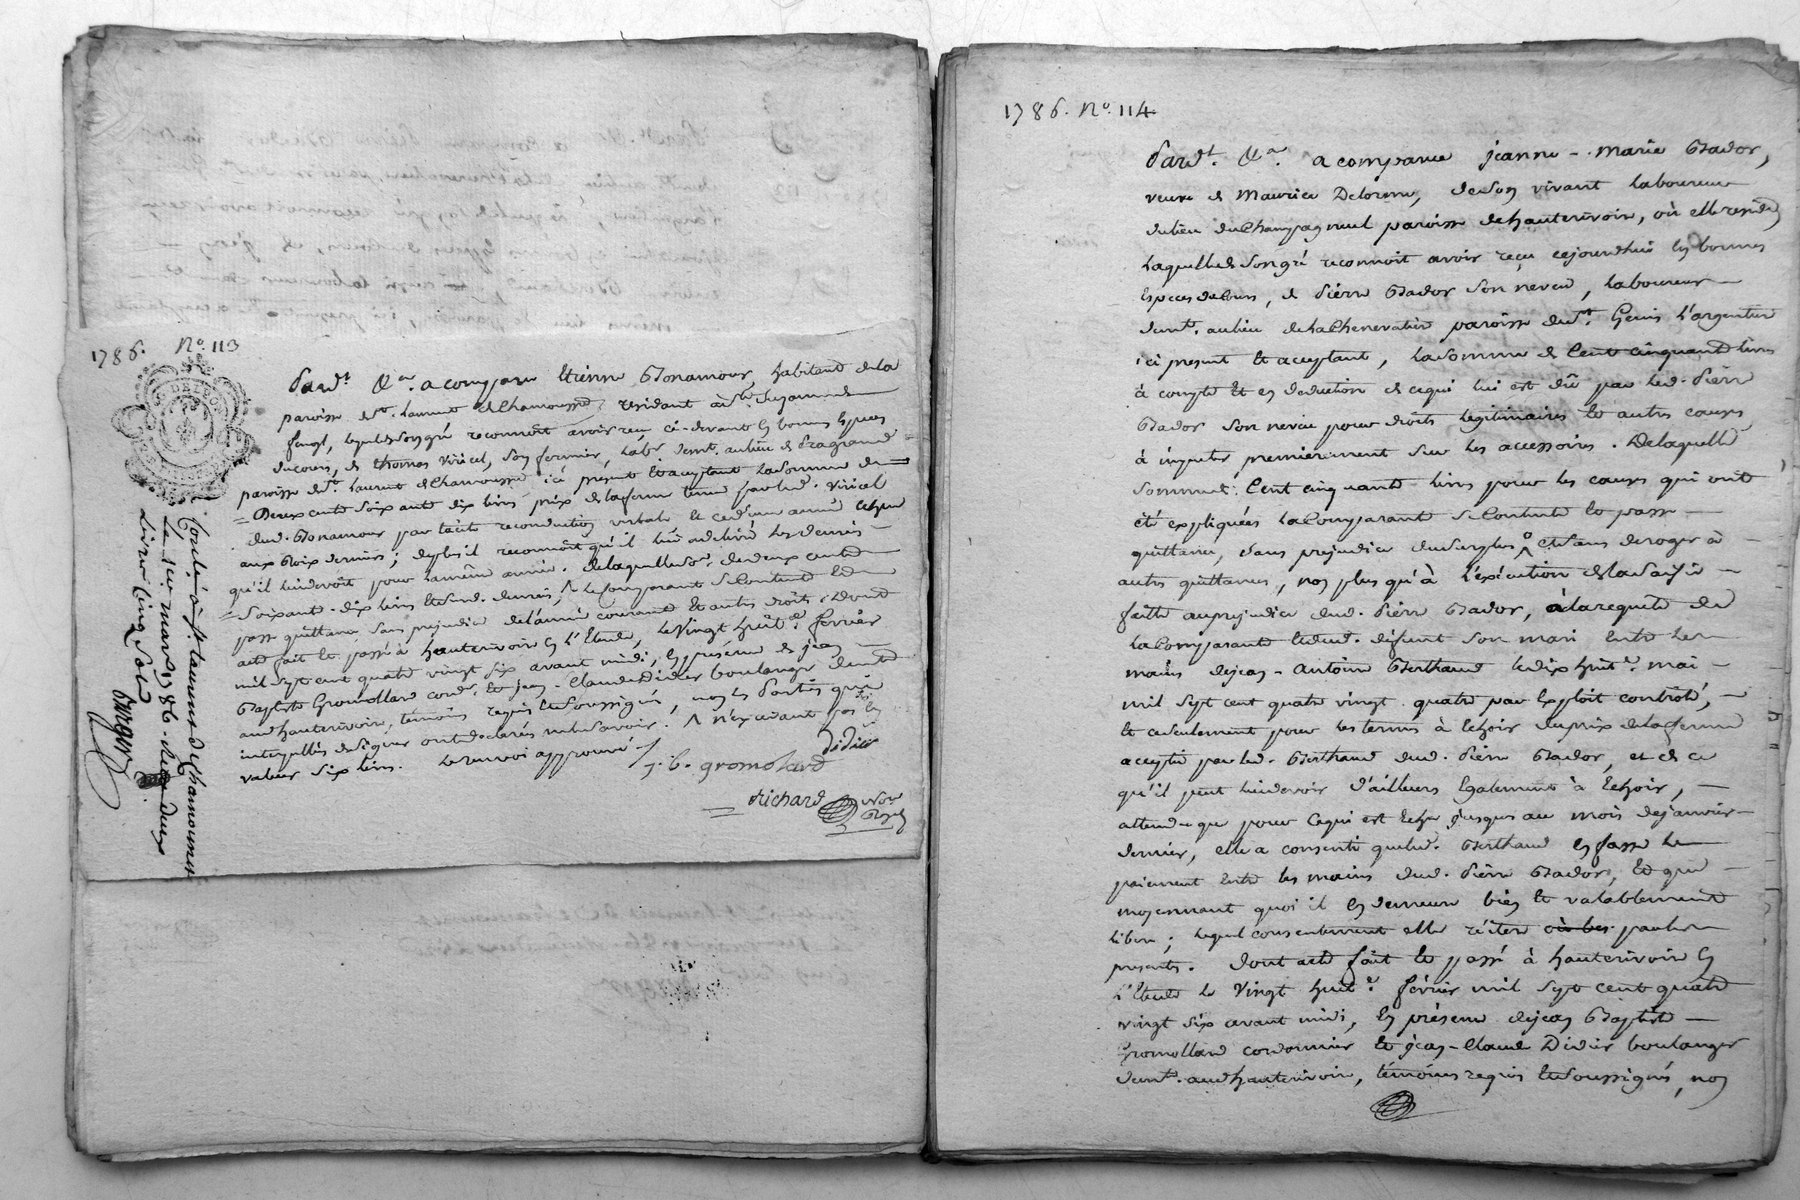 1786. No. 113
Pardt. &a. a comparu Etienne Bonamour, habitant de la
paroisse de st. Laurent de Chamousset, residant à ste.
lequel de son gré reconnoit avoir reçu ci-devant en bonnes especes
du cours, de thomas Viricel, son fermier, labr. demt. au lieu de
paroisse de st. Laurent de Chamousset ici present et acceptant la somme de
= Deux cents soixante dix livres prix de la ferme tenue par led. Viricel
dud. Bonamour par tacite reconduction verbale et ce d'une année echue
aux Rois derniers; de plus il reconnoit qu'il lui a delivré les denrées
qu'il lui devoit pour la même année. De laquelle so.e de deux cents
= soixante-dix livres et susd. denrées, /\ le comparant se contente et
passe quittance sans prejudice de l'année courante et autres droits. Dont
acte fait et passé à hauterivoire en l'Etude, le vingt huit e. fevrier
mil sept cent quatre vingt six avant midi, en présence de jean
Baptiste Gromollard cordr. et jean-Claude Didier boulanger demts.
aud. hauterivoire, témoins requis et soussignés, non les parties qui
interpellées de signer ont declaré ne le savoir. /\ n'excedant pas en
valeur six livres. le renvoi approuvé
didier
j. b. gromolard
Richard Nore
Royal
Conlé à st. laurent de Chamousset
le 1er mars 1786. deux
Livres cinq sols
1786. No. 114
Pardt. &a. a comparue jeanne-marie Bador,
veuve de Maurice Delorme, de son vivant laboureur
du lieu du Champagneul paroisse de hauterivoire, où elle reside,
Laquelle de son gré reconnoit avoir reçu cejourdhui en bonnes
Especes de cours, de Piérre Bador son neveu, laboureur
demt. au lieu de la Chenevatiere paroisse de st. Genis l'argentiere
ici present et acceptant, la somme de Cent cinquante livres
à compte et en deduction de ce qui lui est dû par led. Piérre
Bador son neveu pour droits legitimaires et autres causes
à imputer premiérement sur les accessoires. De laquelle
somme de Cent cinquante livres pour les causes qui ont
été expliquées la Comparante se Contente et passe
quittance, sans prejudice du surplus et sans deroger à
autres quittances, non plus qu'à l'exécution de la saisie
faite au prejudice dud. Piérre Bador, à la requête de
la Comparante et dud. défunt son mari entre les
mains de jean-Antoine Berthaud le dix huit e. mai
mil sept cent quatre vingt quatre par Exploit contrôlé,
et ce seulement pour les termes à Echoir du prix de la ferme
accepté par led. Berthaud dud. Piérre Bador, et de ce
qu'il peut lui devoir d'ailleurs Egalement à Echoir,
attendu que pour ce qui est Echu jusques au mois de janvier
dernier, elle a consenti que led. Berthaud en fasse le
paiement entre les mains dud. Piérre Bador, et que
moyennant quoi il en demeure bien et valablement
libéré; lequel consentement elle réitere par les
presents. Dont acte fait et passé à hauterivoire en
l'Etude le vingt huit e. février mil sept cent quatre
vingt six avant midi, En présence de jean Baptiste
Gromollard cordonnier et jean-Claude Didier boulanger
demts. aud. hauterivoire, témoins requis et soussignés, non